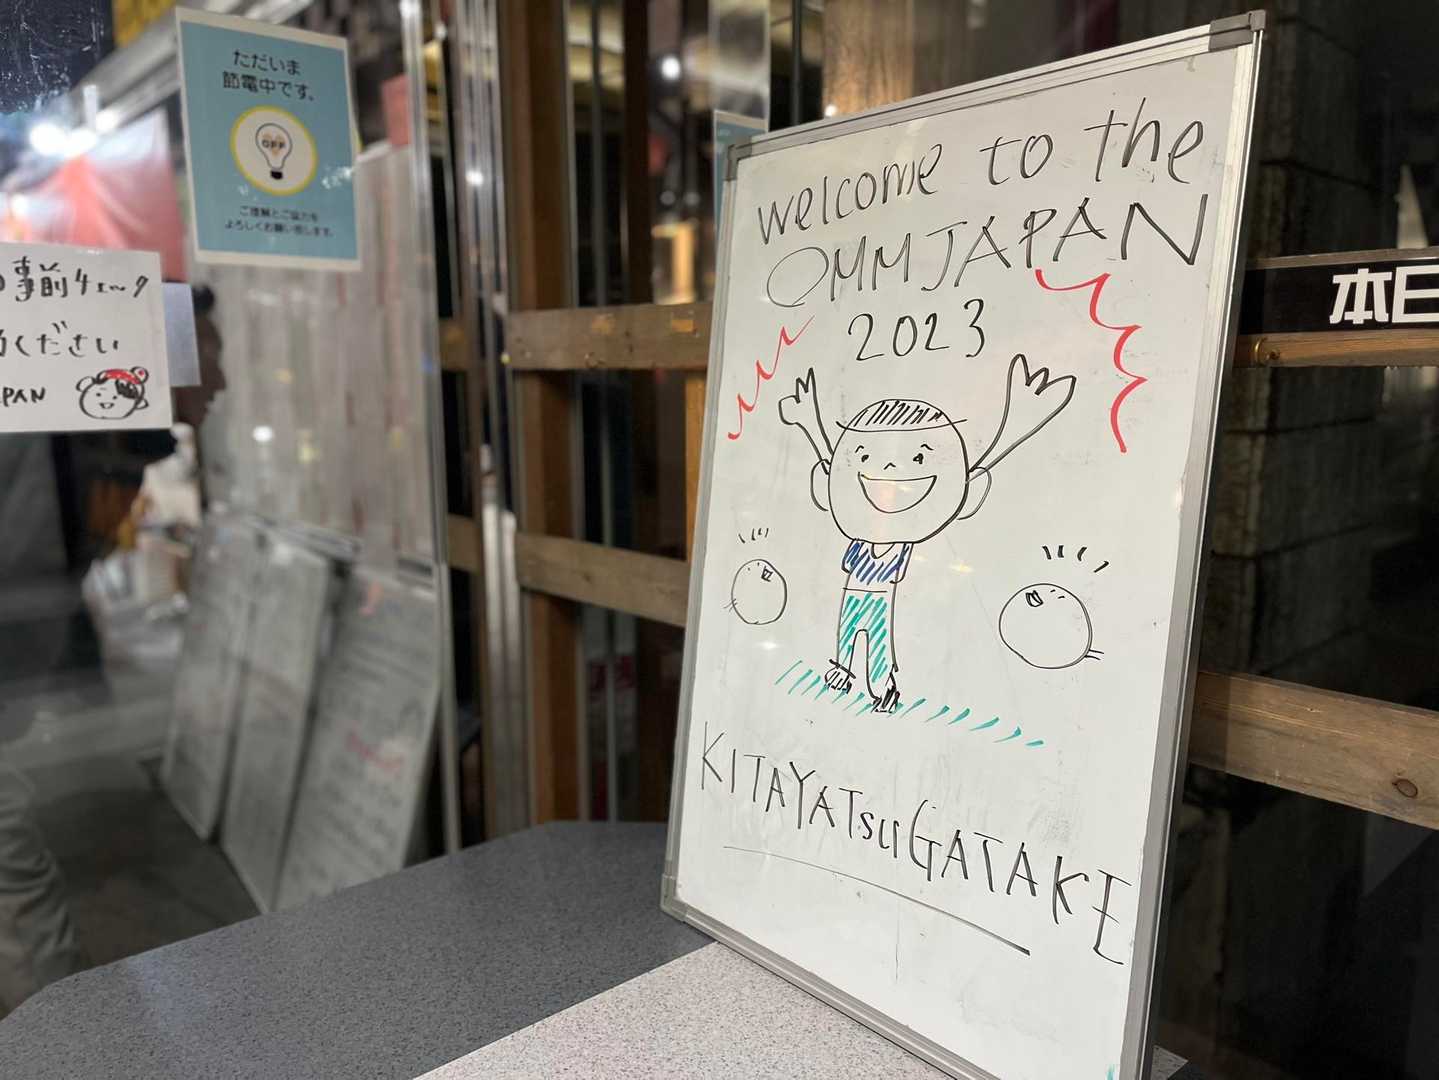 ただいま
節電中です。
OFF
ご理解とご協力を
よろしくお願い致します。
事前チェック
ください
PAN
welcome to the
OMM JAPAN
2023
KITAYATSUGATAKE
本日